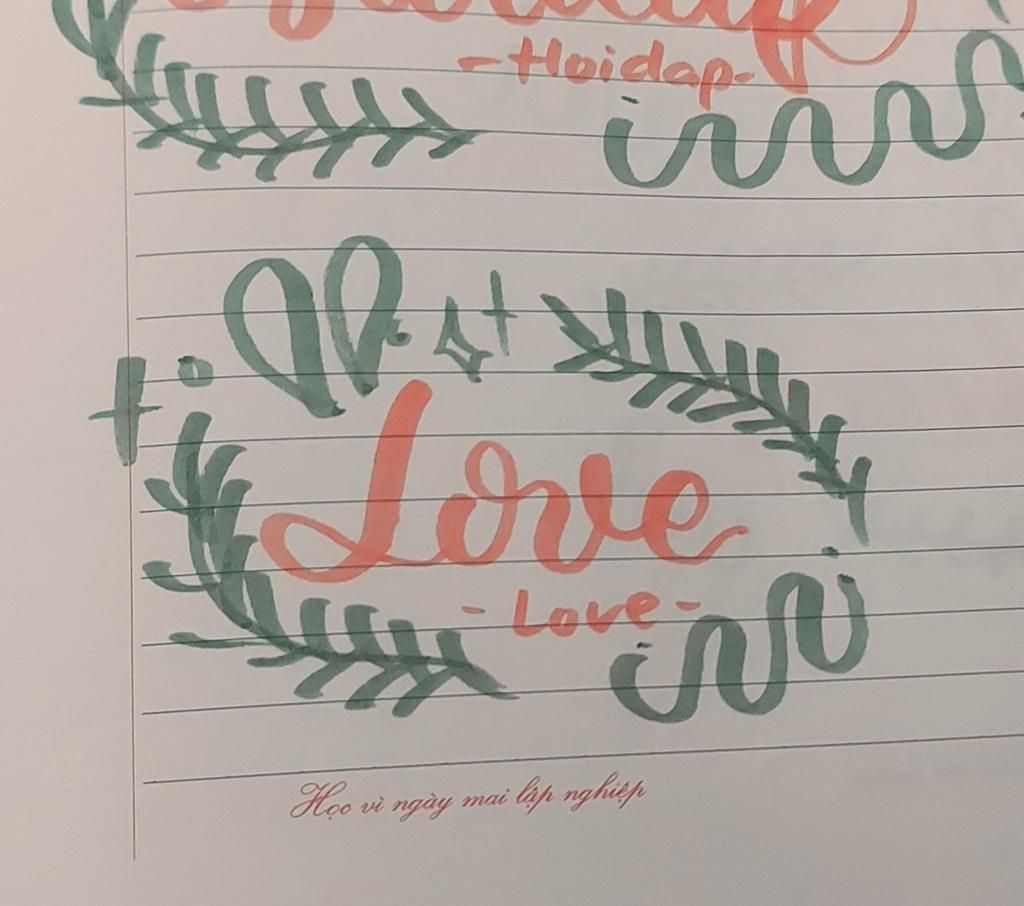 -Hoidap-
Love
-Love-
Học vì ngày mai lập nghiệp